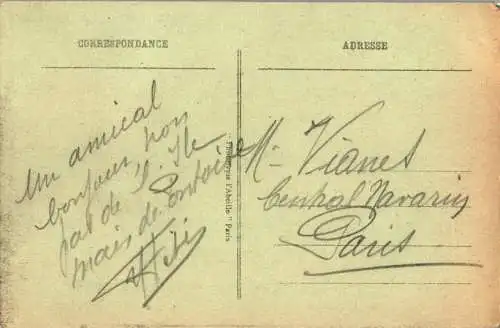 CORRESPONDANCE
Un amical
bonjour, non
pas de l'Isle
mais de Pontoise
ADRESSE
M. Vianet
Central Navarin
Paris
"Phototypie l'Abeille" Paris